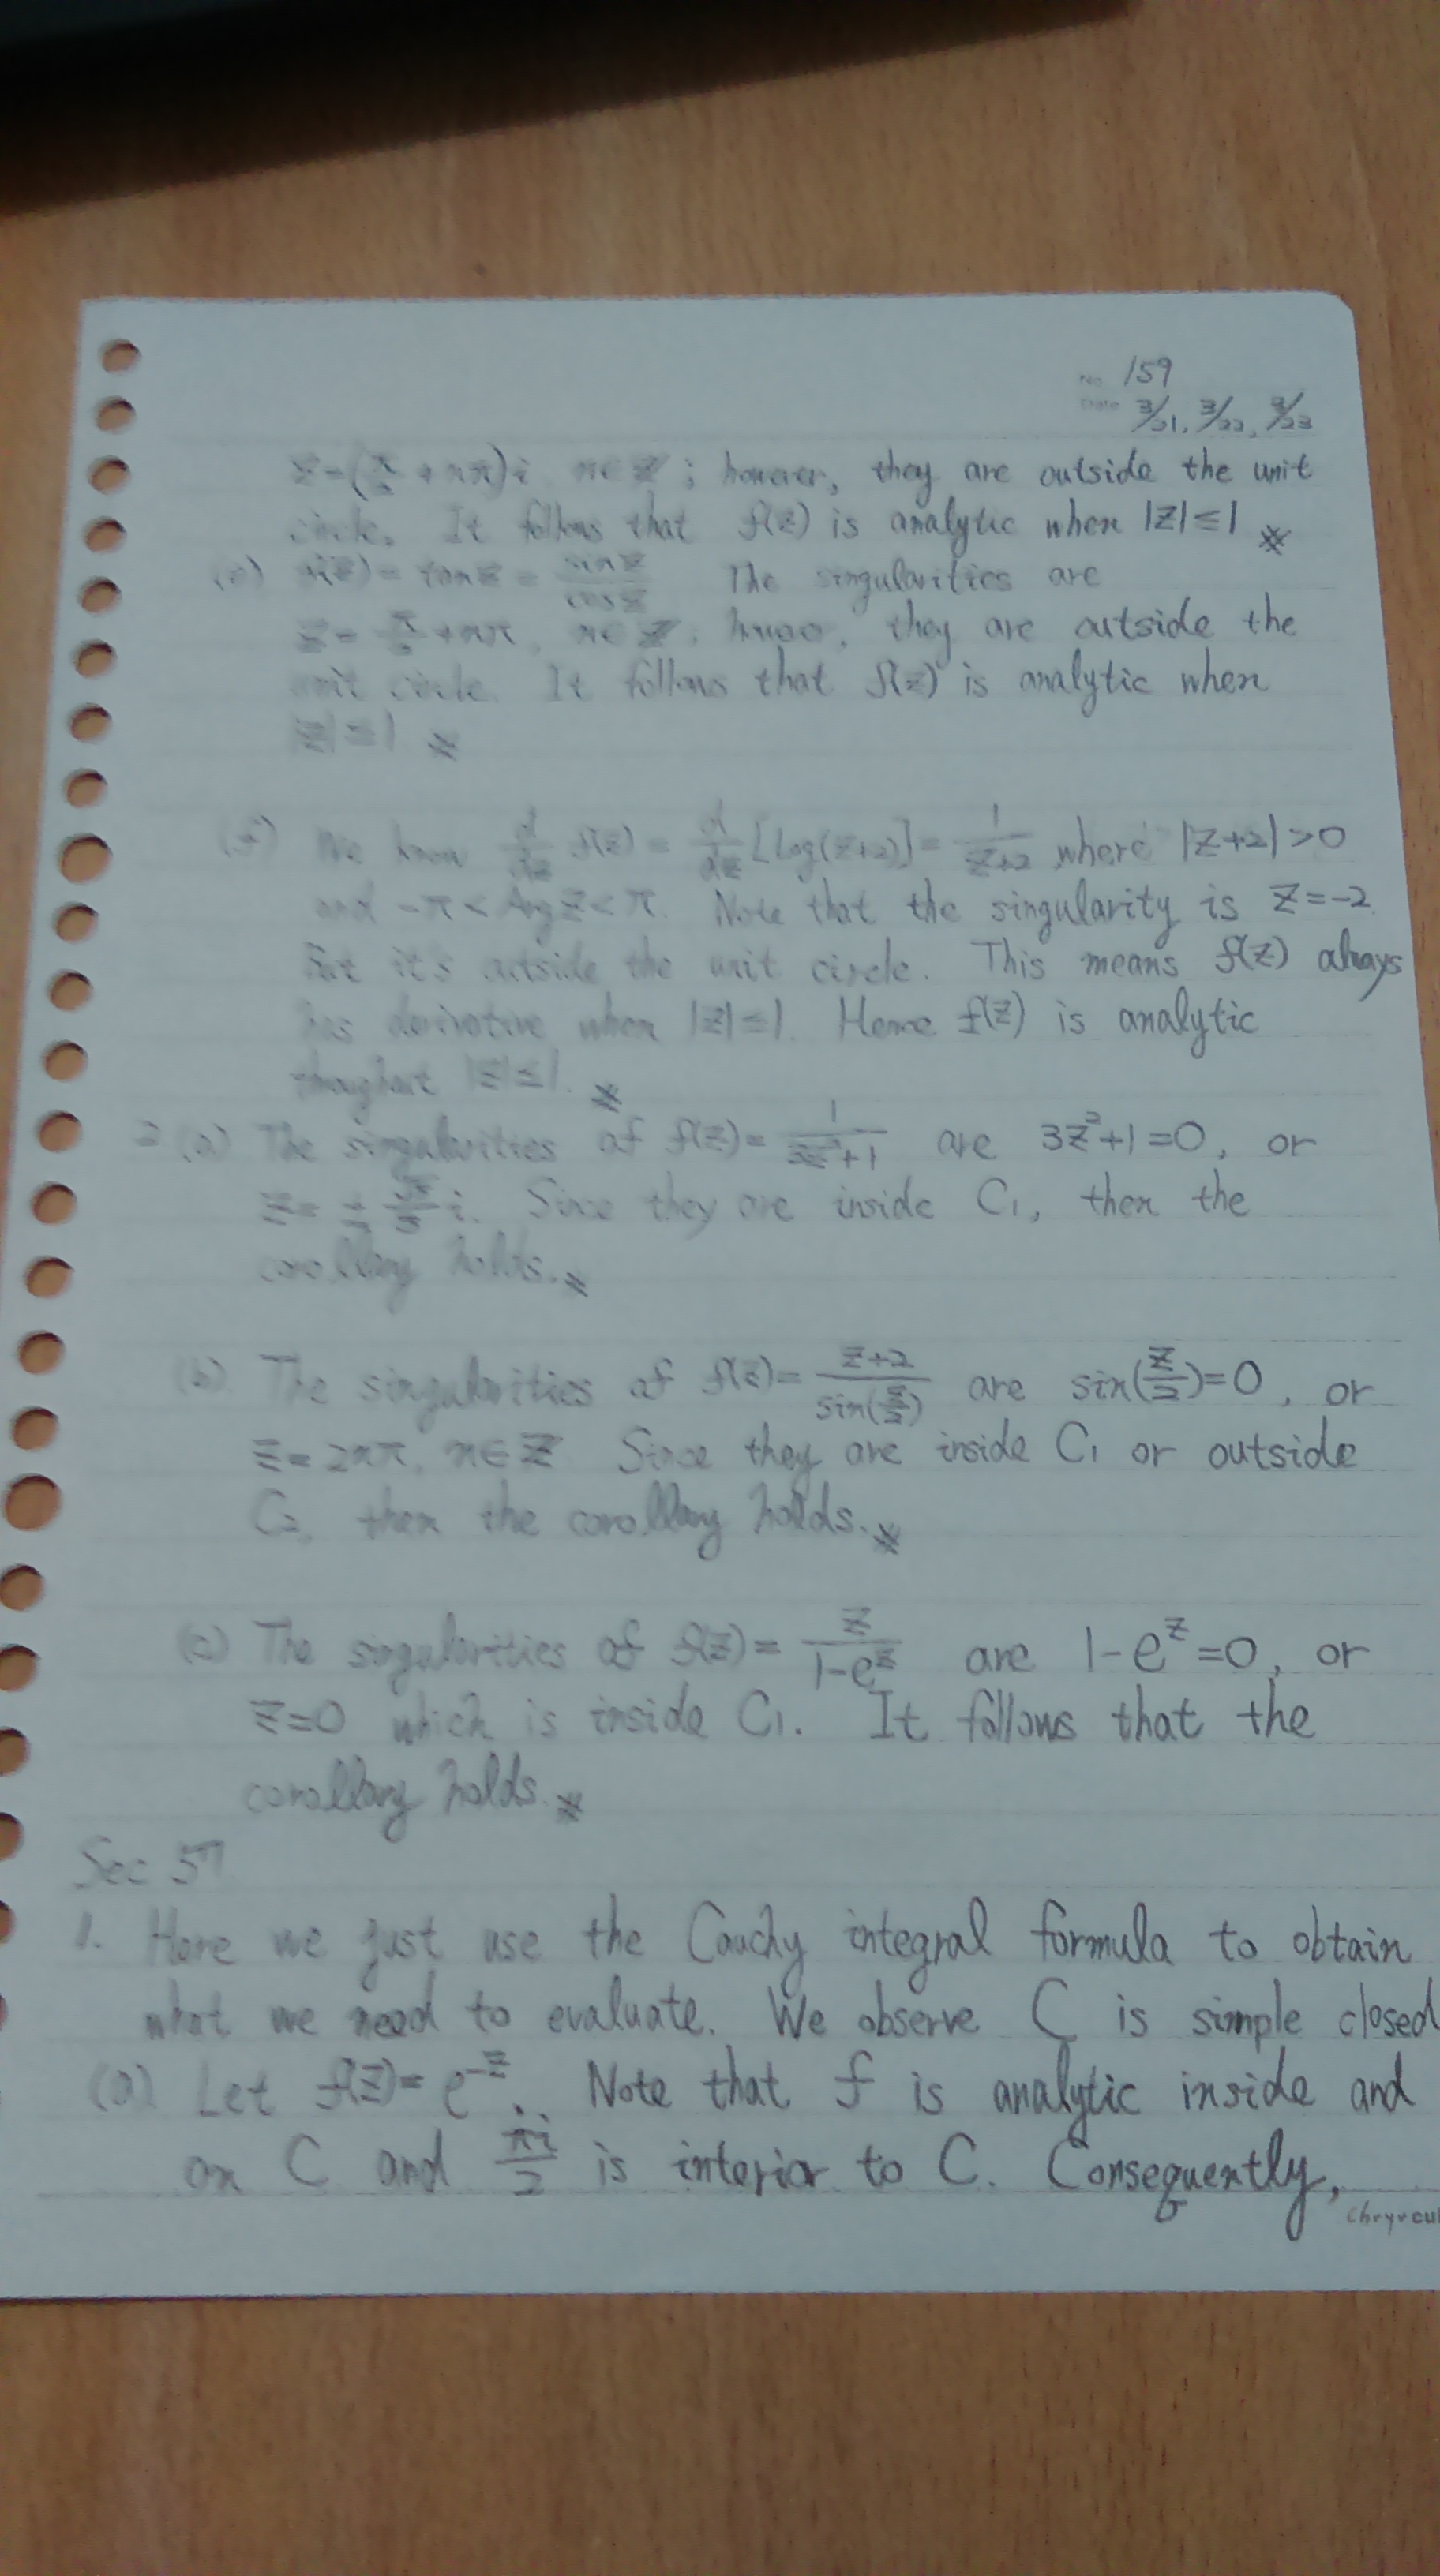 No. 159
Date 3/21, 3/22, 3/23
z=(π/2+nπ)i n∈Z; however, they are outside the unit
circle. It follows that f(z) is analytic when |z|≤1 ※
(e) f(z)=tan z=sin z/cos z The singularities are
z=π/2+nπ, n∈Z, they are outside the
unit circle. It follows that f(z) is analytic when
|z|≤1 ※
(f) We know d/dz f(z)=d/dz[Log(z+2)]=1/(z+2), where |z+2|>0
and -π<Arg z<π. Note that the singularity is z=-2
But it's outside the unit circle. This means f(z) always
has derivative when |z|≤1. Hence f(z) is analytic
throughout |z|≤1. ※
2 (a) The singularities of f(z)=1/(3z²+1) are 3z²+1=0, or
z=±√3/3 i. Since they are inside C₁, then the
corollary holds. ※
(b) The singularities of f(z)=(z+2)/sin(z/2) are sin(z/2)=0, or
z=2nπ, n∈Z Since they are inside C₁ or outside
C₂, then the corollary holds. ※
(c) The singularities of f(z)=z/(1-e^z) are 1-e^z=0, or
z=0 which is inside C₁. It follows that the
corollary holds. ※
Sec 57
1. Here we just use the Cauchy integral formula to obtain
what we need to evaluate. We observe C is simple closed
(a) Let f(z)=e^-z. Note that f is analytic inside and
on C and πi/2 is interior to C. Consequently,